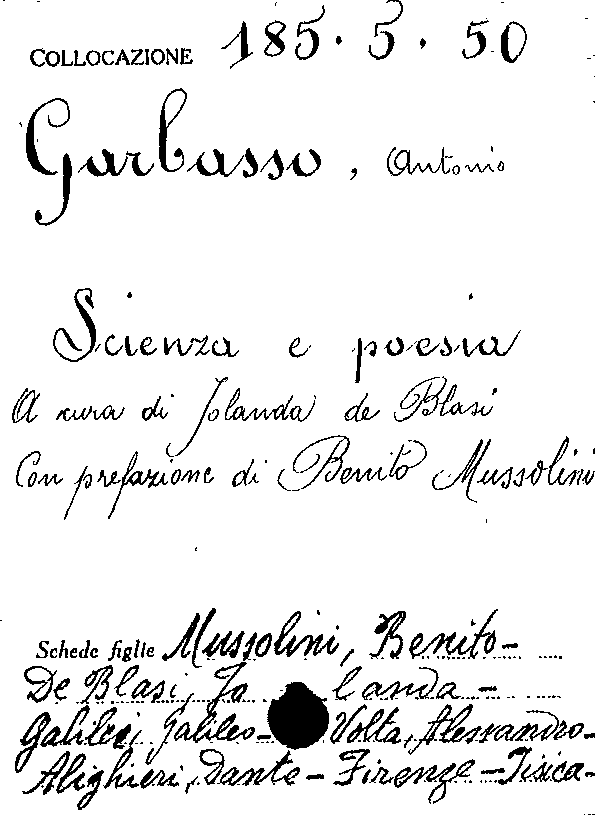 COLLOCAZIONE 185. 5. 50
Garbasso, Antonio
Scienza e poesia
A cura di Jolanda de Blasi
Con prefazione di Benito Mussolini
Schede figlie Mussolini, Benito-
De Blasi, Jo landa -
Galilei, Galileo- Volta, Alessandro-
Alighieri, Dante - Firenze - Fisica-